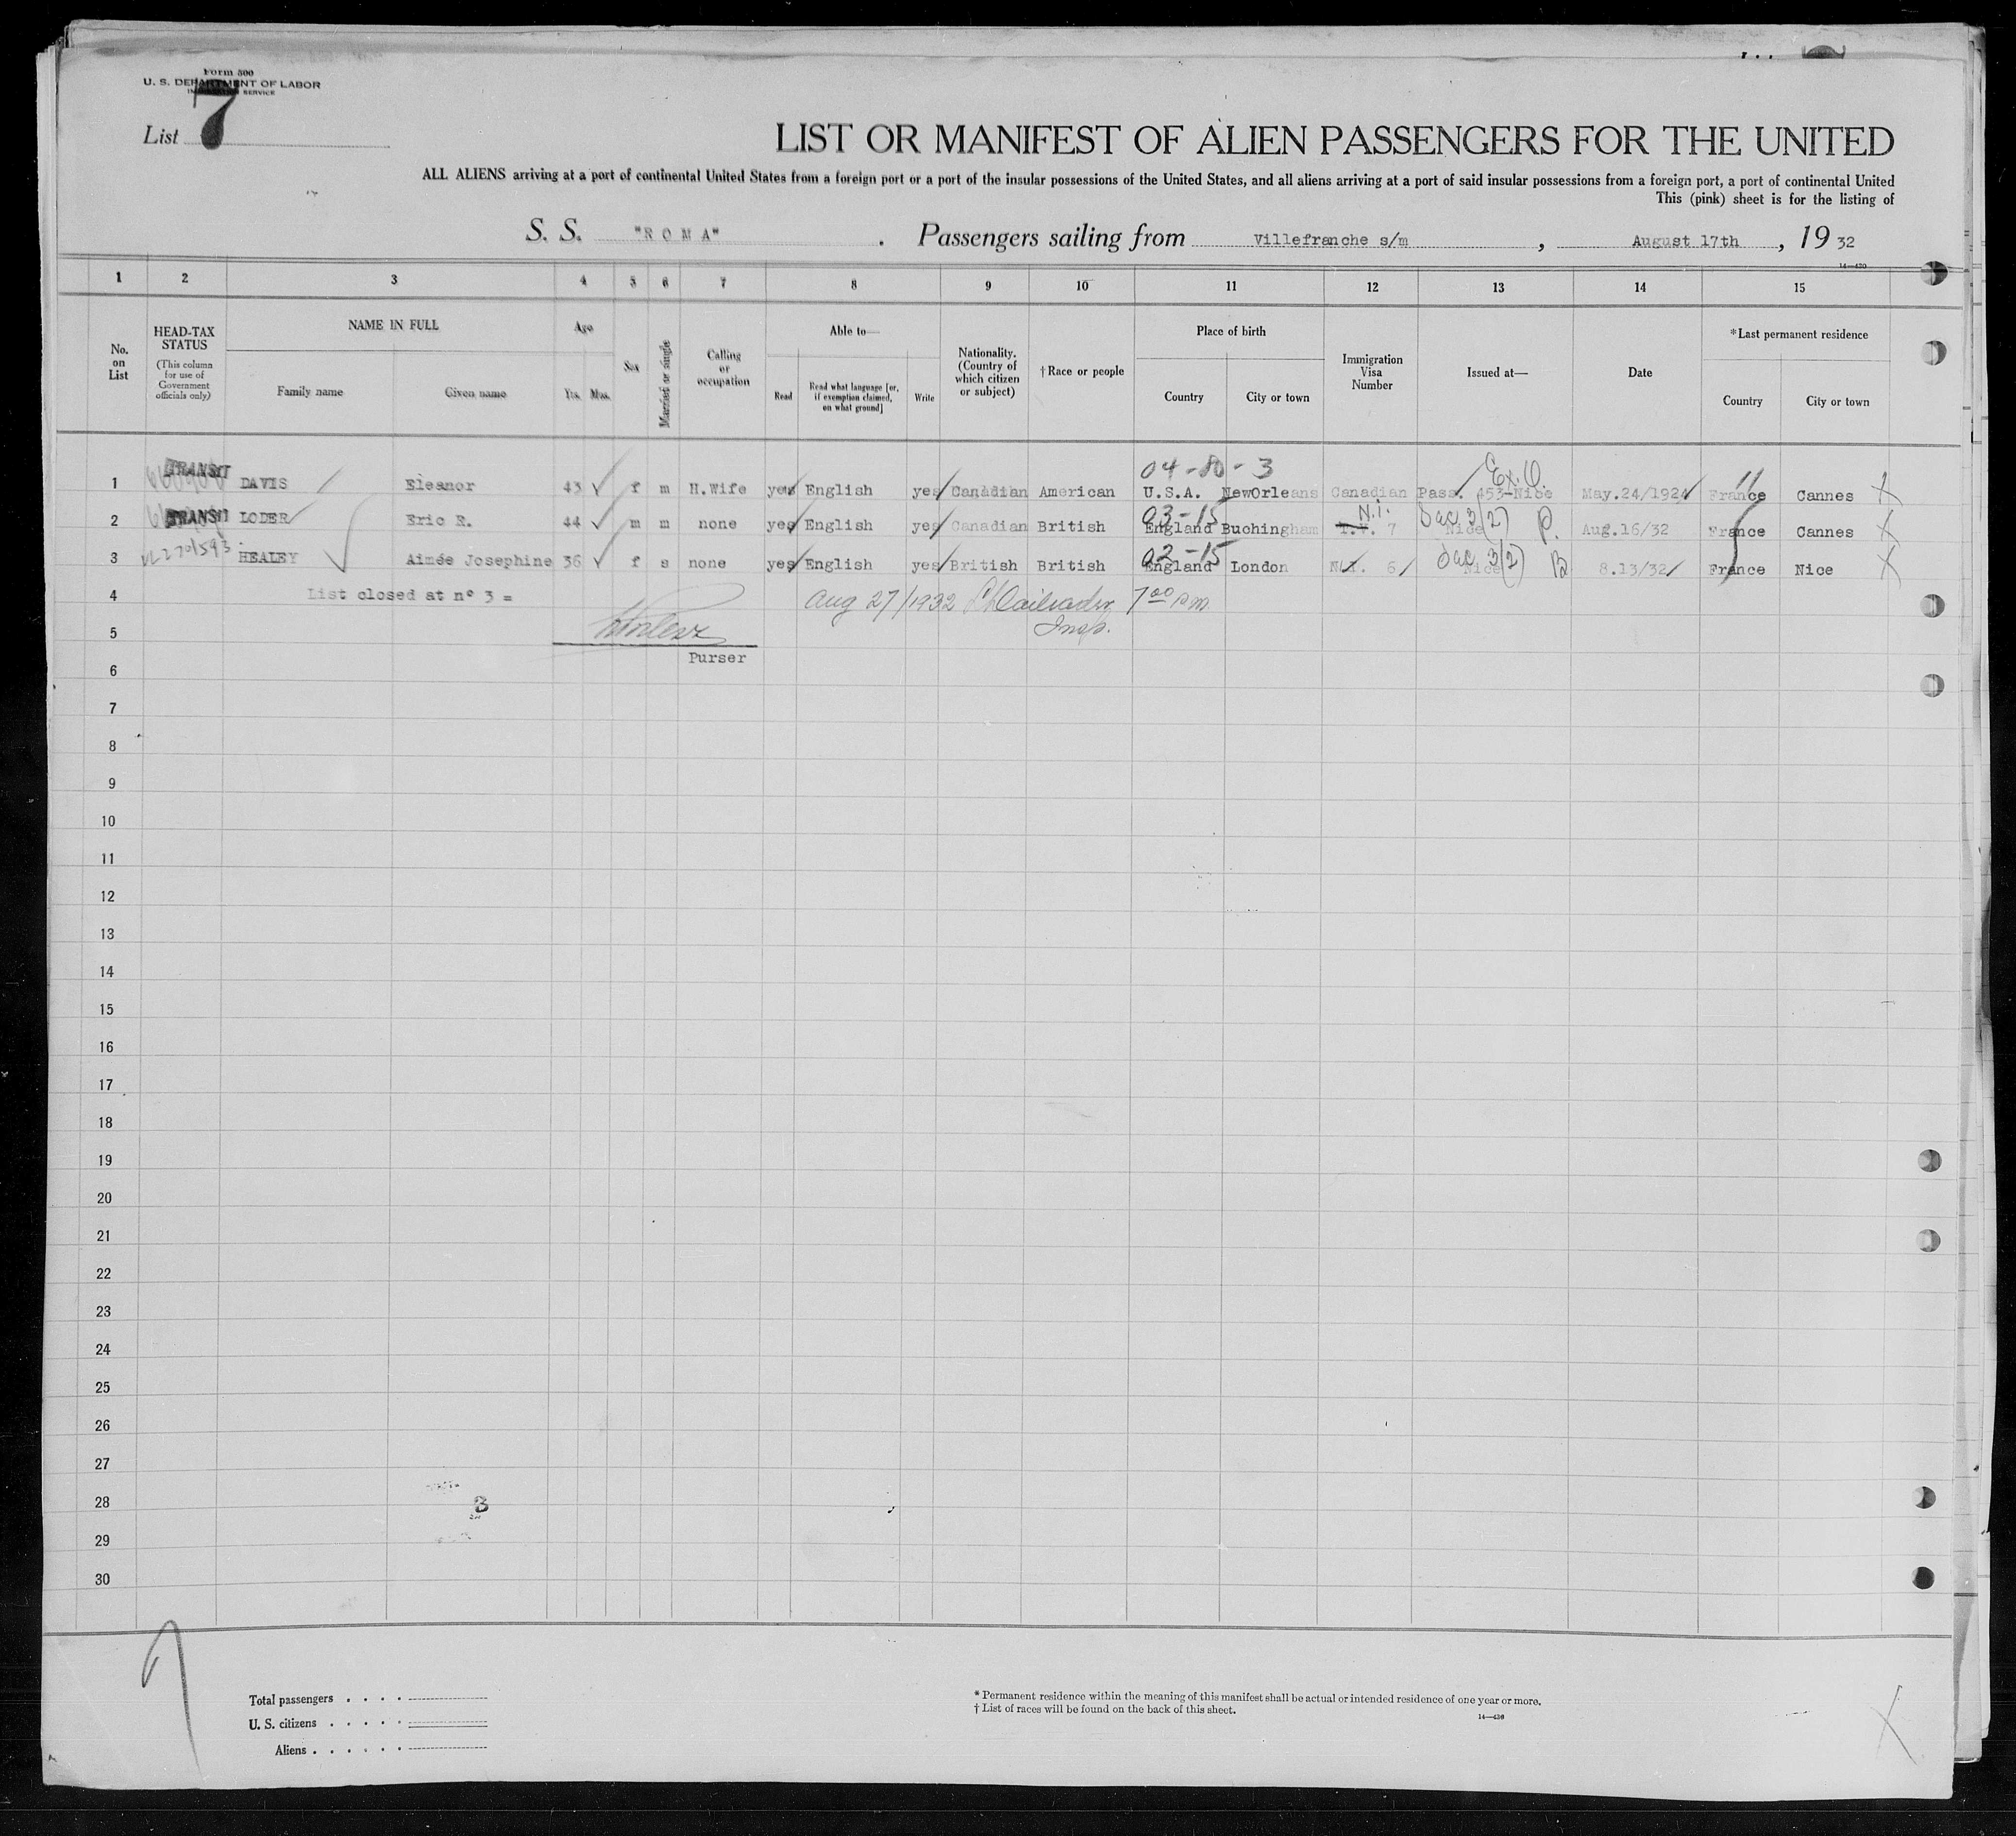 Form 500
U. S. DEPARTMENT OF LABOR
IMMIGRATION SERVICE
List 7
LIST OR MANIFEST OF ALIEN PASSENGERS FOR THE UNITED
ALL ALIENS arriving at a port of continental United States from a foreign port or a port of the insular possessions of the United States, and all aliens arriving at a port of said insular possessions from a foreign port, a port of continental United
This (pink) sheet is for the listing of
S. S. "ROMA". Passengers sailing from Villefranche s/m, August 17th, 1932
14—430
1 2 3 4 5 6 7 8 9 10 11 12 13 14 15
No. on List
HEAD-TAX STATUS (This column for use of Government officials only)
NAME IN FULL
Family name
Given name
Age
Yrs. Mos.
Sex
Married or single
Calling or occupation
Able to—
Read
Read what language [or, if exemption claimed, on what ground]
Write
Nationality. (Country of which citizen or subject)
†Race or people
Place of birth
Country
City or town
Immigration Visa Number
Issued at—
Date
*Last permanent residence
Country
City or town
04-80-3 Ex. O.
1 TRANSIT DAVIS Eleanor 43 f m H.Wife yes English yes Canadian American U.S.A. NewOrleans Canadian Pass. 453-Nice May.24/1924 France Cannes
03-15 N.i. Sec 3(2) P.
2 TRANSIT LODER Eric R. 44 m m none yes English yes Canadian British England Buchingham 7 Nice Aug.16/32 France Cannes
02-15 Sec 3(2) B
3 HEALEY Aimée Josephine 36 f s none yes English yes British British England London 6 Nice 8.13/32 France Nice
4 List closed at n° 3 = Aug 27/1932 7 00 PM
5 Insp.
Purser
6
7
8
9
10
11
12
13
14
15
16
17
18
19
20
21
22
23
24
25
26
27
28 B
29
30
Total passengers . . . .
U. S. citizens . . . . .
Aliens . . . . . .
* Permanent residence within the meaning of this manifest shall be actual or intended residence of one year or more.
† List of races will be found on the back of this sheet.
14—430